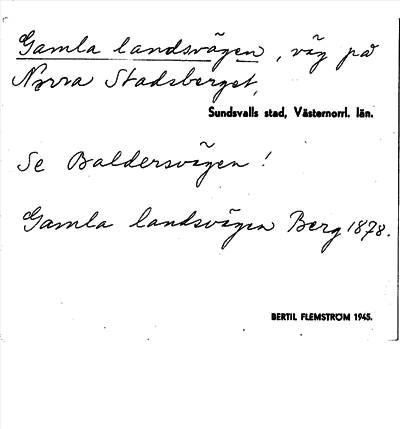 Gamla landsvägen, väg på
Norra Stadsberget,
Sundsvalls stad, Västernorrl. län.
Se Baldersvägen!
Gamla landsvägen Berg 1878.
BERTIL FLEMSTRÖM 1945.